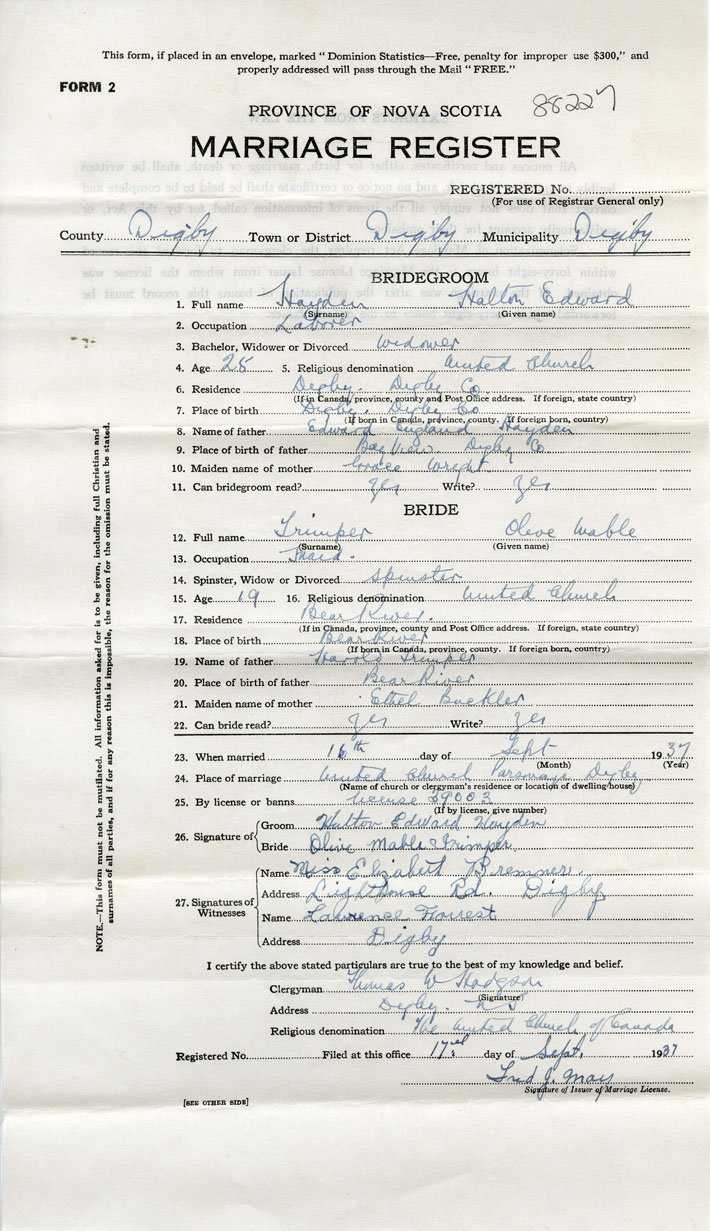 This form, if placed in an envelope, marked " Dominion Statistics—Free, penalty for improper use $300," and
properly addressed will pass through the Mail " FREE."
FORM 2
PROVINCE OF NOVA SCOTIA 88227
MARRIAGE REGISTER
REGISTERED No.
(For use of Registrar General only)
County Digby Town or District Digby Municipality Digby
BRIDEGROOM
1. Full name Hayden Halton Edward
(Surname) (Given name)
2. Occupation Laborer
3. Bachelor, Widower or Divorced widower
4. Age 28 5. Religious denomination United Church
6. Residence Digby. Digby Co
(If in Canada, province, county and Post Office address. If foreign, state country)
7. Place of birth Digby. Digby Co
(If born in Canada, province, county. If foreign born, country)
8. Name of father Edward England Hayden
9. Place of birth of father Bay View. Digby Co
10. Maiden name of mother Grace Wright
11. Can bridegroom read? yes Write? yes
BRIDE
12. Full name Trimper Olive Mable
(Surname) (Given name)
13. Occupation Maid.
14. Spinster, Widow or Divorced spinster
15. Age 19 16. Religious denomination United Church
17. Residence Bear River.
(If in Canada, province, county and Post Office address. If foreign, state country)
18. Place of birth Bear River
(If born in Canada, province, county. If foreign born, country)
19. Name of father Harold Trimper
20. Place of birth of father Bear River
21. Maiden name of mother Ethel Buckler
22. Can bride read? yes Write? yes
23. When married 16th day of Sept 1937
(Month) (Year)
24. Place of marriage United Church Parsonage Digby
(Name of church or clergyman's residence or location of dwelling house)
25. By license or banns license 39003
(If by license, give number)
26. Signature of Groom Halton Edward Hayden
Bride Olive Mable Trimper
27. Signatures of Witnesses Name Miss Elizabeth Bremner
Address Lighthouse Rd. Digby
Name Lawrence Forrest
Address Digby
I certify the above stated particulars are true to the best of my knowledge and belief.
Clergyman Thomas W Hodgson
(Signature)
Address Digby. N S
Religious denomination The United Church of Canada
Registered No. Filed at this office 17th day of Sept. 1937
Fred J. May
Signature of Issuer of Marriage License.
[SEE OTHER SIDE]
NOTE.—This form must not be mutilated. All information asked for is to be given, including full Christian and
surnames of all parties, and if for any reason this is impossible, the reason for the omission must be stated.